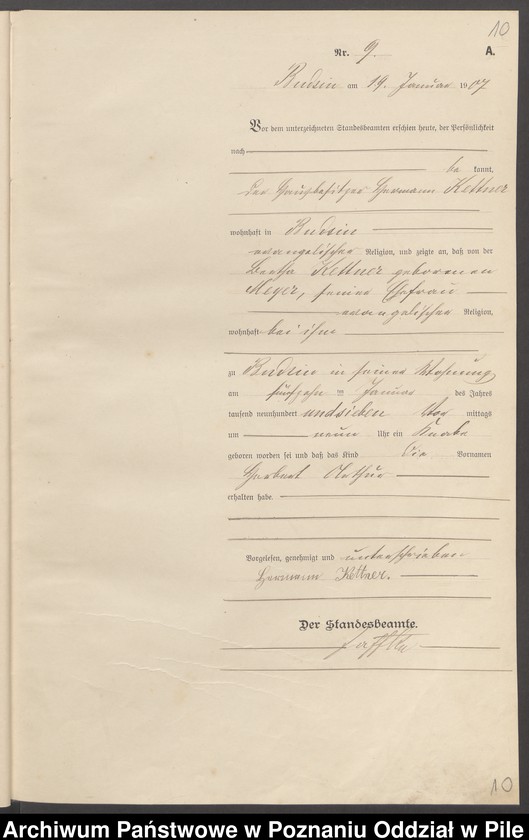 10
Nr. 9. A.
Budsin am 19. Januar 1907
Vor dem unterzeichneten Standesbeamten erschien heute, der Persönlichkeit
nach
be kannt,
der Hausbesitzer Hermann Kettner
wohnhaft in Budsin
evangelischer Religion, und zeigte an, daß von der
Bertha Kettner geborenen
Meyer, seiner Ehefrau
evangelischer Religion,
wohnhaft bei ihm
zu Budsin in seiner Wohnung
am fünfzehn ten Januar des Jahres
tausend neunhundert undsieben Vor mittags
um neun Uhr ein Knabe
geboren worden sei und daß das Kind die Vornamen
Herbert Arthur
erhalten habe.
Vorgelesen, genehmigt und unterschrieben
Hermann Kettner.
Der Standesbeamte.
10
Archiwum Państwowe w Poznaniu Oddział w Pile